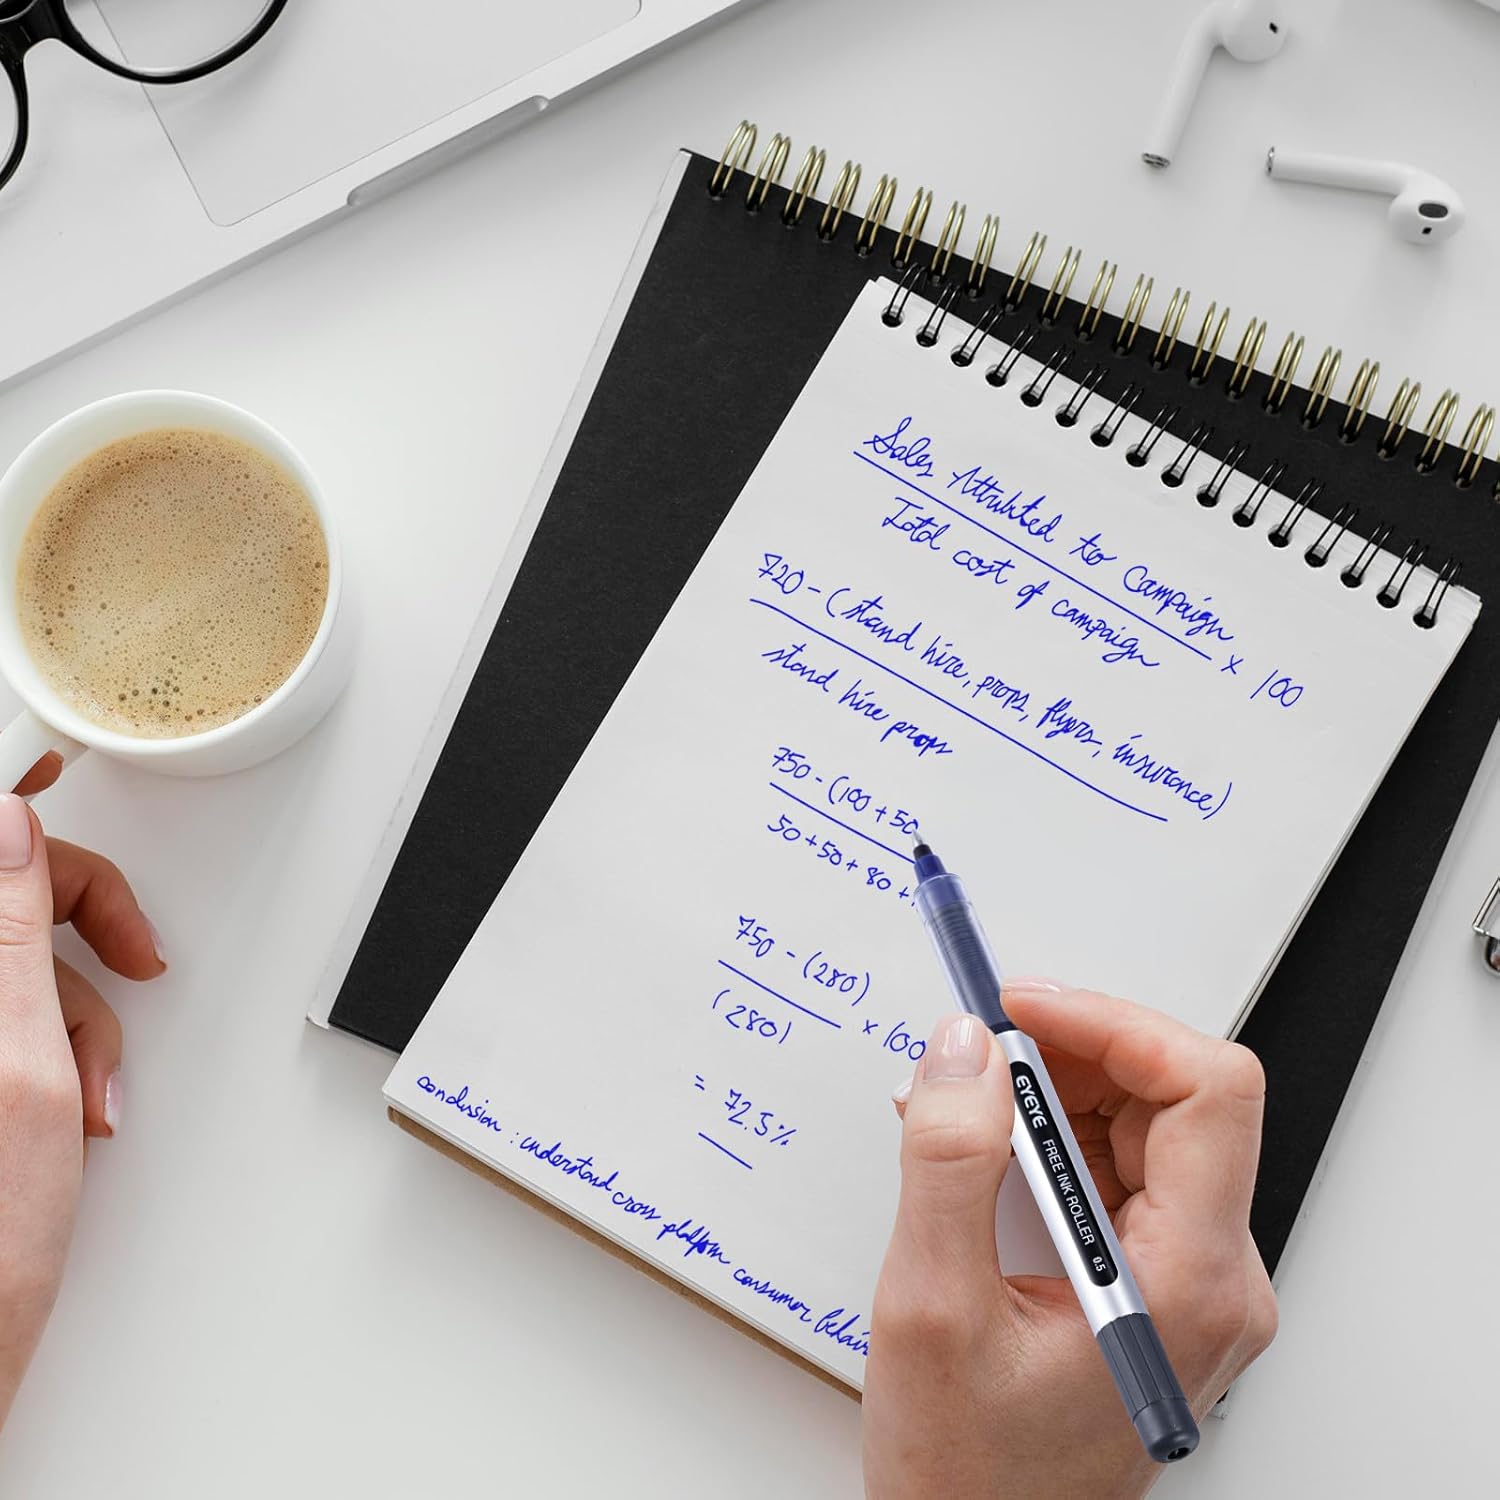 Sales Attributed to Campaign
Total cost of campaign
x 100
720 - (stand hire, props, flyers, insurance)
stand hire props
750 - (100 + 50
50 + 50 + 80 +
750 - (280)
(280)
x 100
= 72.5%
conclusion : understand cross platform consumer behavi
EYEYE FREE INK ROLLER 0.5